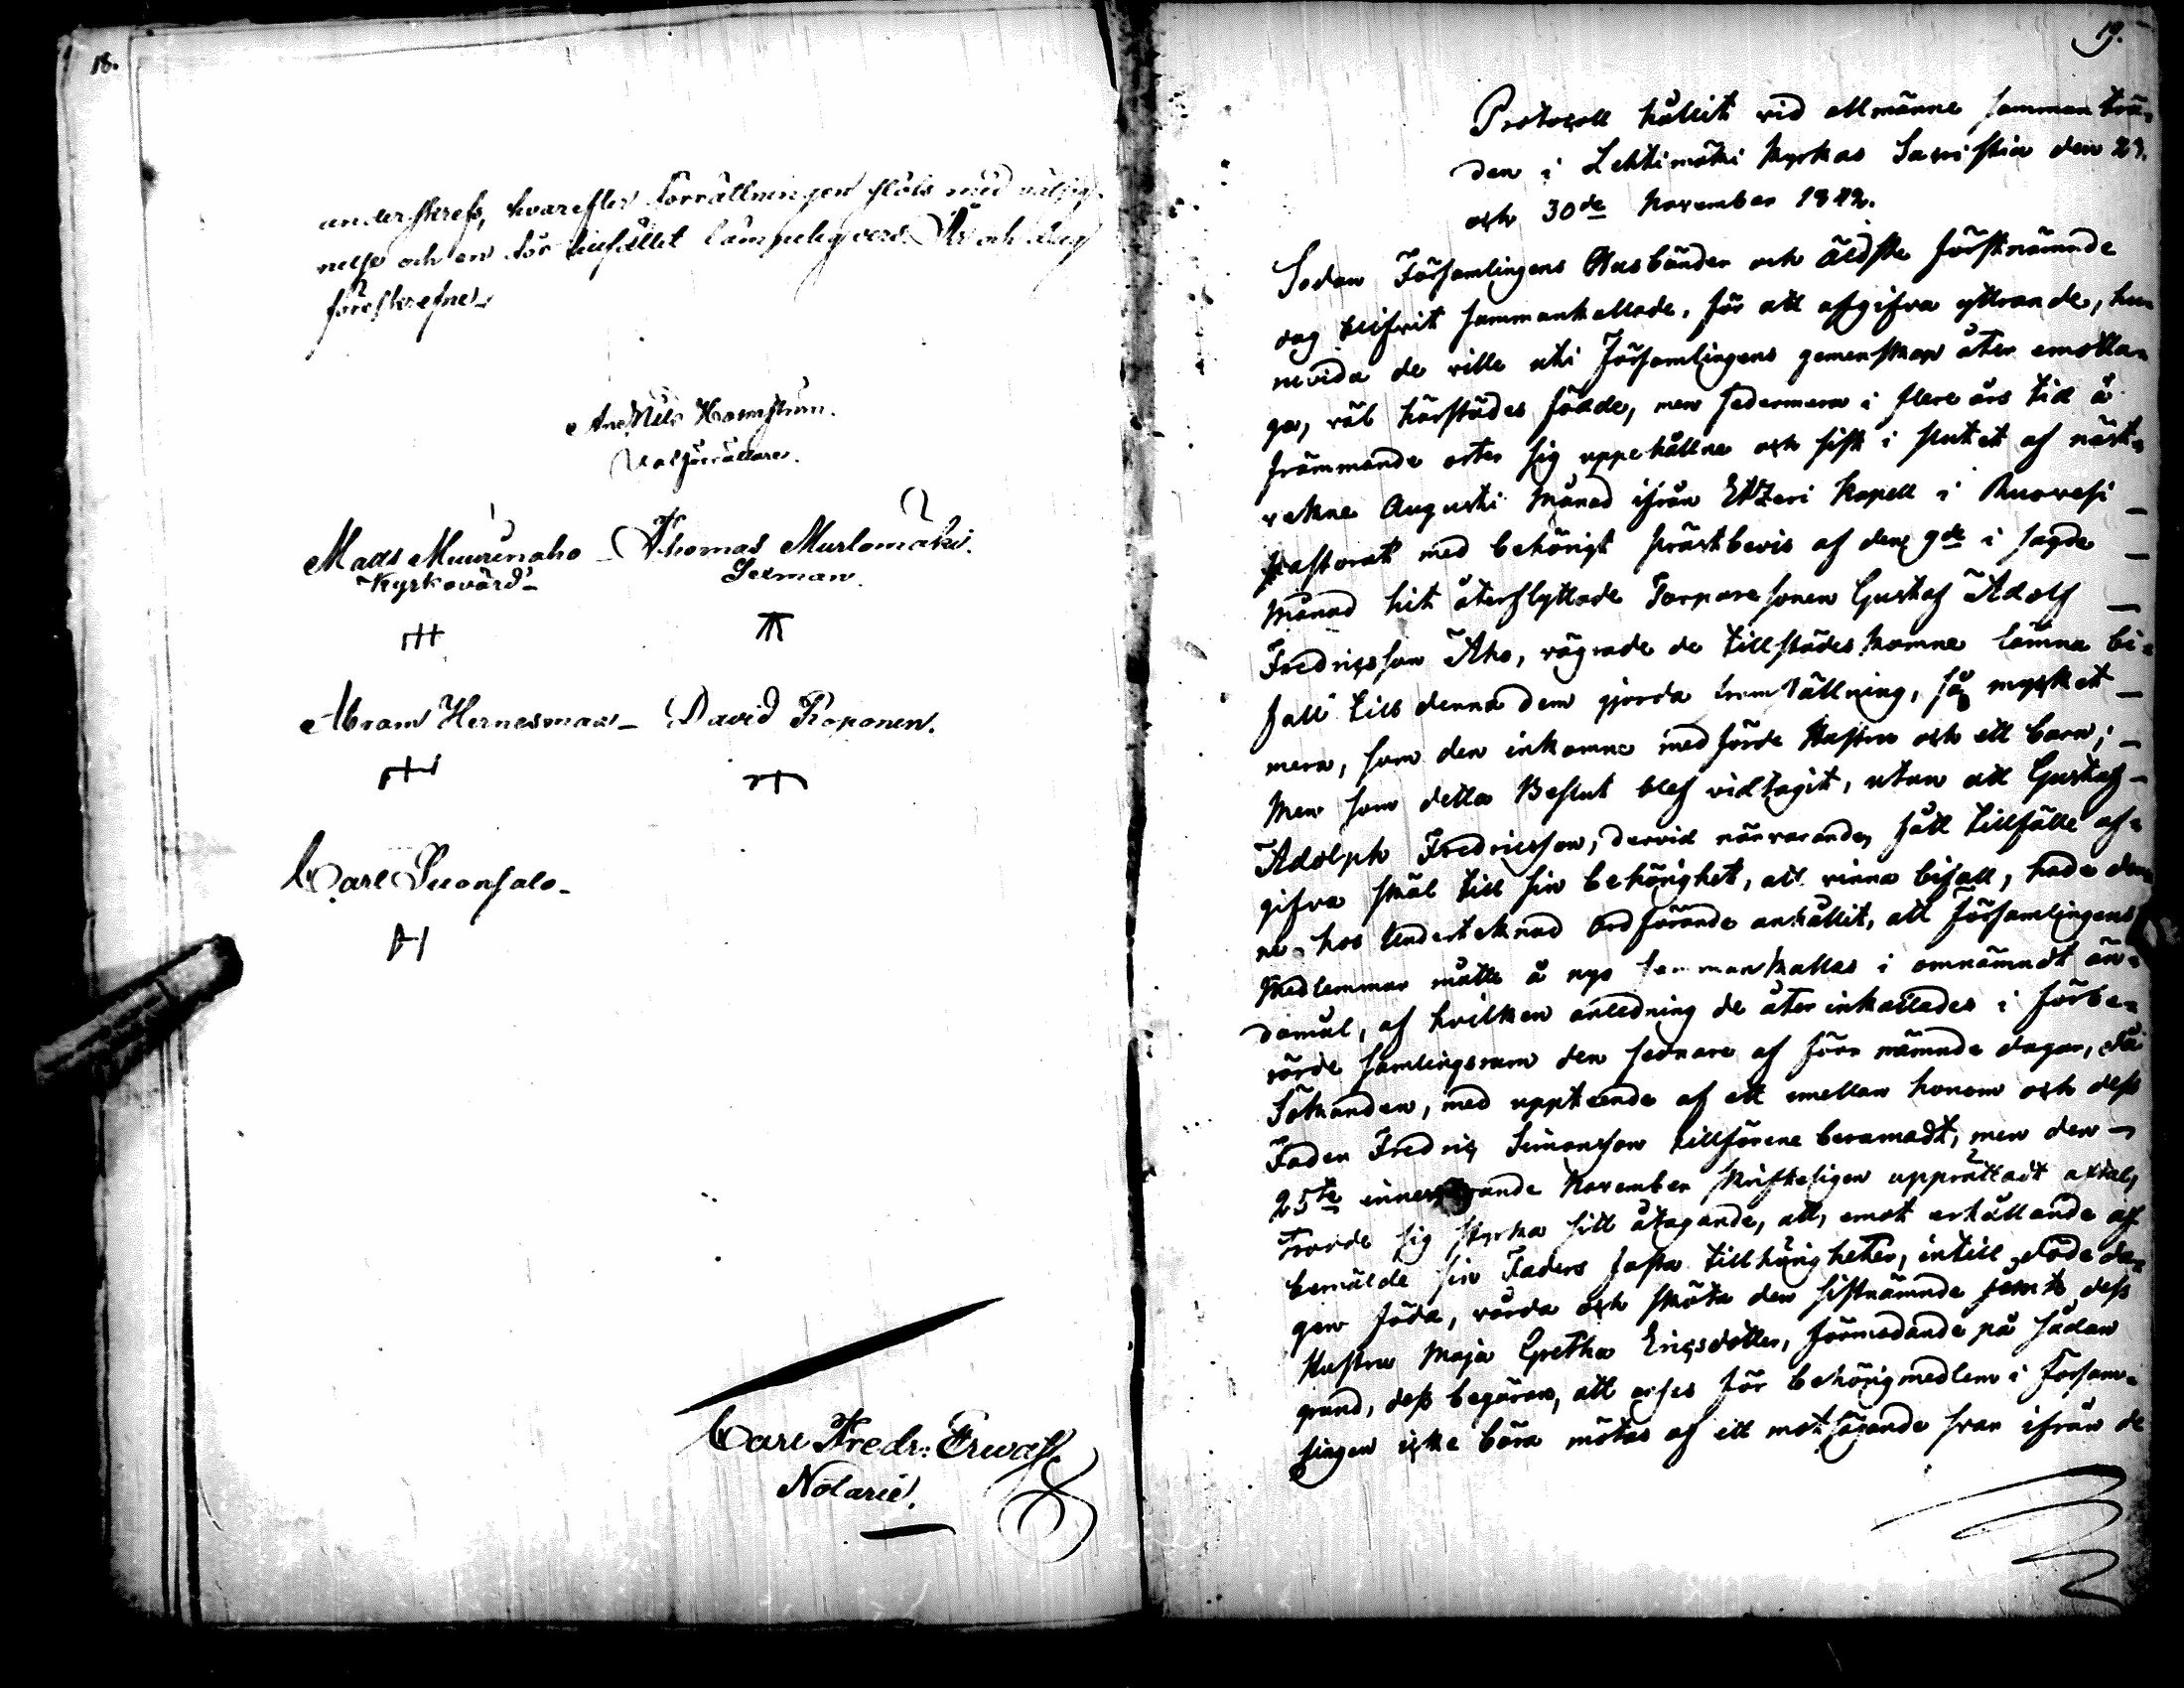 18.
underskrefs, hvarefter Förrättningen slöts med välsig-
nelse och en för tillfället lämpelig vers. År och dag
föreskrefne
And Nils Holmström.
Valförrättare.
Matts Muurinaho Thomas Murtomäki.
Kyrkovärd Sexman.
Abram Hernesmaa David Roponen.
Carl Suonsalo
Carl Fredr: Erwast
Notarie.
19.
Protocoll hållit vid allmänne samman trä-
den i Lehtimäki Kyrkas Sacristia den 29.
och 30de November 1842.
Sedan Församlingens Husbönder och äldste förstnämnde
dag blifvit sammankallade, för att afgifva yttrande, hu
ruvida de ville uti Församlingens gemenskap åter emotta-
ga, väl härstädes födde, men sedermera i flere års tid å
främmande orter sig uppehållne och sist i slutet af näst-
vekne Augusti Månad ifrån Etzeri Kapell i Ruovesi
Pastorat med behörigt prästbevis af den 9de i sagde
Månad hit återflyttade Torpare sonen Gustaf Adolf
Fredricsson Aho, vägrade de tillstädes komne lämna bi-
fall till denna dem gjorda framställning, så mycket
mera, som den inkomne medförde Hustru och ett barn;
Men som detta Beslut blef vidtagit, utan att Gustaf
Adolph Fredricsson, dervid närvarande, fått tillfälle af-
gifva skäl till sin behörighet, att vinna bifall, hade den-
ne hos Undertecknad Ordförande anhållit, att Församlingens
Medlemmar måtte å nyo sammankallas i omnämndt än-
damål, af hvilken anledning de åter inkallades i förbe-
rörde samlingsrum den sednare af förr nämnde dagar, då
Sökanden, med uppteende af ett emellan honom och dess
Fader Fredric Simonsson tillförene beramadt, men den
25te innevarande November skrifteligen upprättadt aftal,
trodde sig styrka sitt åtagande, att, emot erhållande af
bemälde sin Faders fasta tillhörigheter, intill döde da-
gar föda, vårda och sköta den sistnämnde jemte dess
Hustru Maja Gretha Ericsdotter, förmodande på sådan
grund, dess begäran, att anses för behörig medlem i Försam-
lingen icke böra mötas af ett mot sägande svar ifrån de